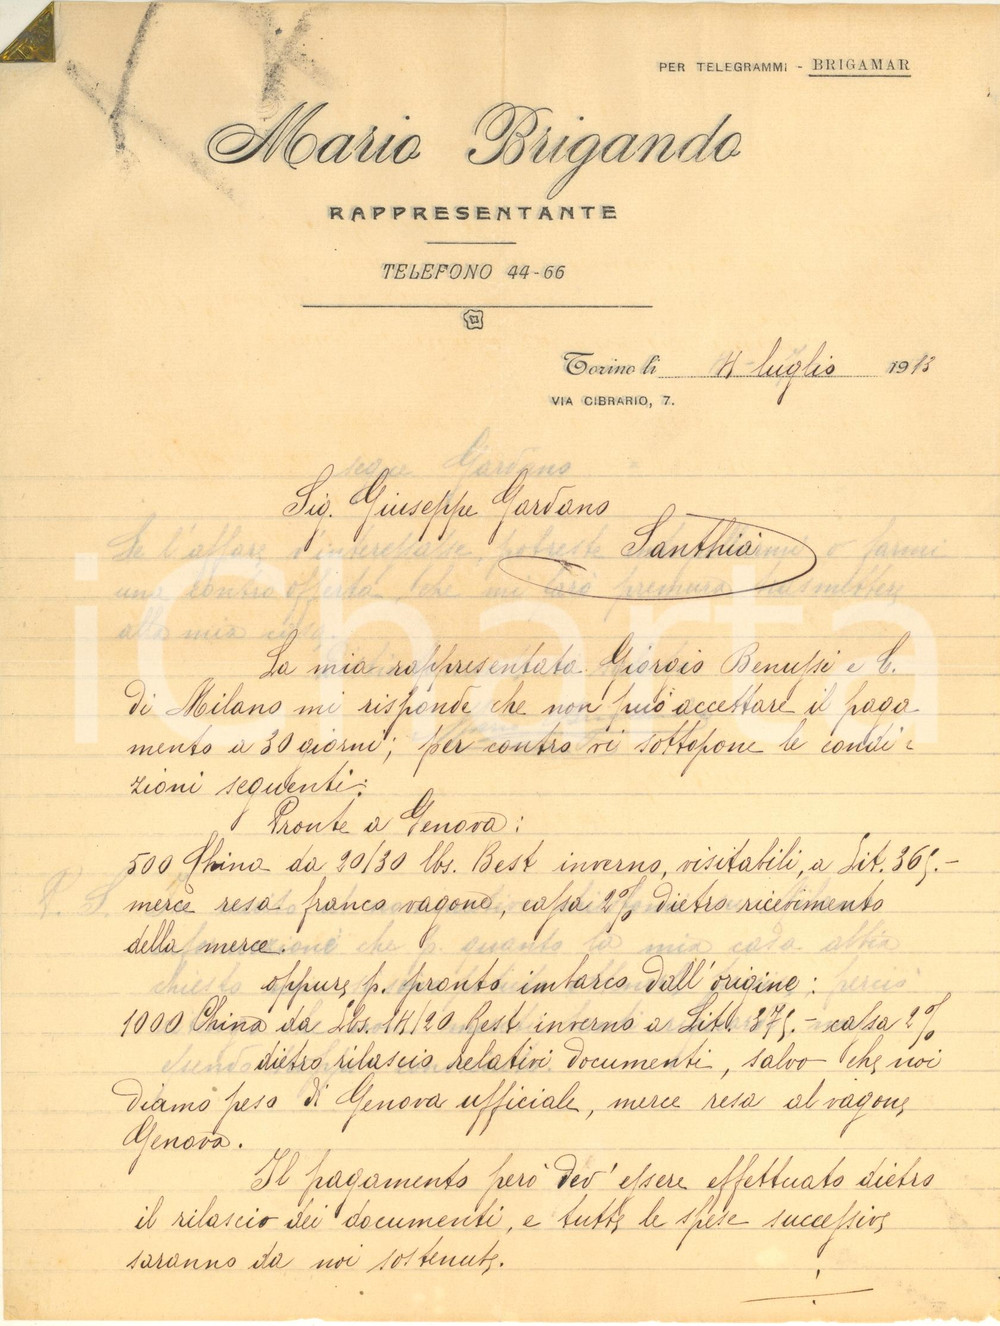 PER TELEGRAMMI - BRIGAMAR
Mario Brigando
RAPPRESENTANTE
TELEFONO 44-66
Torino li 14 luglio 1913
VIA CIBRARIO, 7.
segue Gardano
Sig. Giuseppe Gardano
Santhià
Se l'affare v'interessasse, potreste o farmi
una contro offerta che mi farò premura trasmettere
alla mia casa.
iCharta
La mia rappresentata Giorgio Benussi e C.
di Milano mi risponde che non può accettare il paga
mento a 30 giorni; per contro vi sottopone le condi=
zioni seguenti:
Pronte a Genova:
500 China da 20/30 lbs. Best inverno, visitabili, a Lit. 365.-
merce resa franco vagone, cassa 2% dietro ricevimento
P. S.
della merce.
che quanto la mia casa abbia
chiesto perciò
oppure p. pronto imbarco dall'origine:
1000 China da Lbs. 14/20 Best inverno a Lit. 375.- cassa 2%
dietro rilascio relativi documenti, salvo che noi
diamo peso di Genova ufficiale, merce resa al vagone
Genova.
Il pagamento però dev'essere effettuato dietro
il rilascio dei documenti, e tutte le spese successive
saranno da noi sostenute.